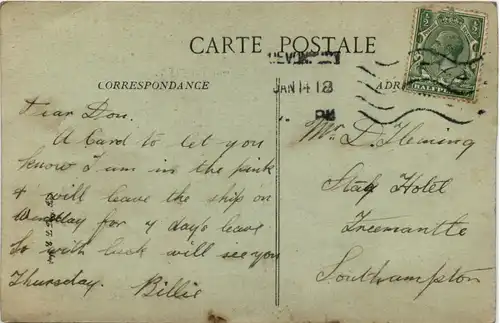 CARTE POSTALE
CORRESPONDANCE
Dear Don.
A Card to let you
know I am in the pink
& will leave the ship on
for 4 days leave
So with luck will see you
Thursday. Billie
JAN 14 18
PM
Mr. D. Fleming
Stag Hotel
Freemantle
Southampton
½
½
HALFPENNY